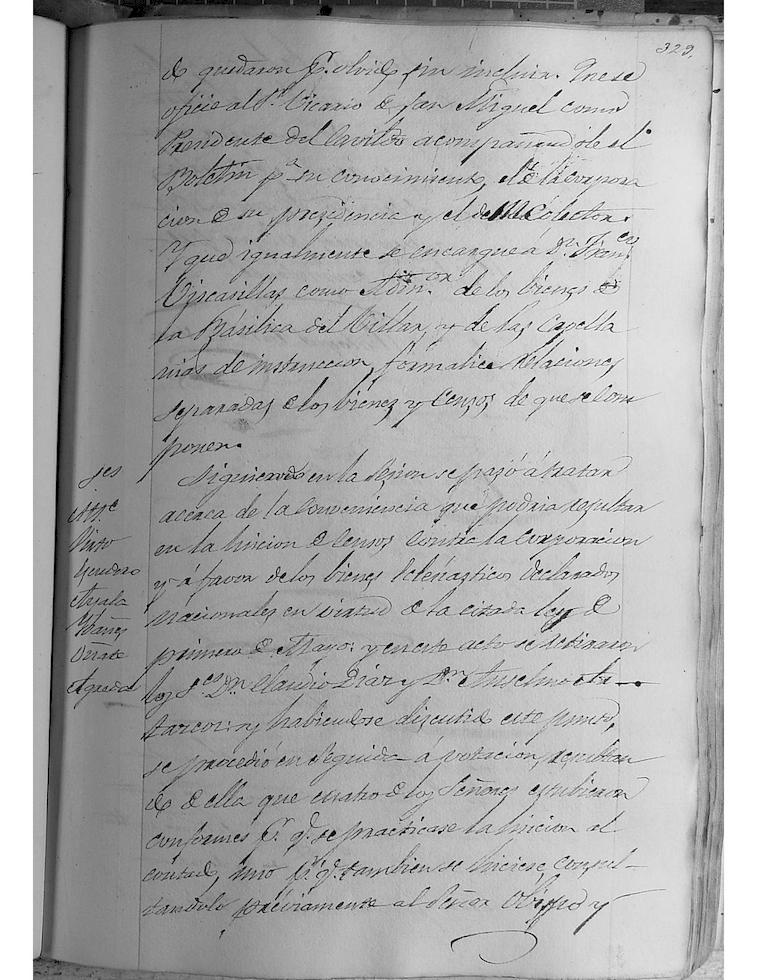 329.
do quedaron pr. olvido sin incluir. Que se
oficie al Sr. Vicario de San Miguel como
Presidente del Cavildo acompañandole el
Boletin pa. su conocimiento, el de la corpora
cion de su presidencia y el del Colector.
Y que igualmente se encargue á Dn. Franco.
Viscasillas como Admor. de los bienes de
la Básilica del Villar, y de las Capella
nias de instruccion, formalice relaciones
separadas de los bienes y Censos de que se com
ponen.
Siguiendo en la sesion se pasó á tratar
acerca de la conveniencia que podria resultar
en la luicion de Censos contra la Corporacion
y á favor de los bienes Eclesiasticos declarados
nacionales en virtud de la citada ley de
primero de Mayo: y en este acto se retiraron
los Sres. Dn. Claudio Diaz y Dn. Anselmo
y habiendose discutido este punto,
se procedió en seguida á votacion, resultan
do de ella que cuatro de los Señores estubieron
conformes pr. q. se practicase la luicion al
contado, uno pr. q. tambien se hiciese consul-
tandolo préviamente al Señor Obispo y
Ses
Alfe.
Pinto
Ayala
Ybañes
Oñate
Agreda